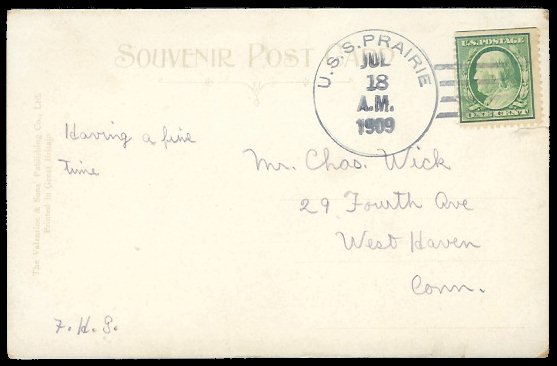 SOUVENIR POST CARD
U.S.S. PRAIRIE
JUL
18
A.M.
1909
U.S. POSTAGE
ONE CENT
Having a fine
time
Mr. Chas. Wick
29 Fourth Ave
West Haven
Conn.
F.H.S.
The Valentine & Sons' Publishing Co., Ltd.
Printed in Great Britain